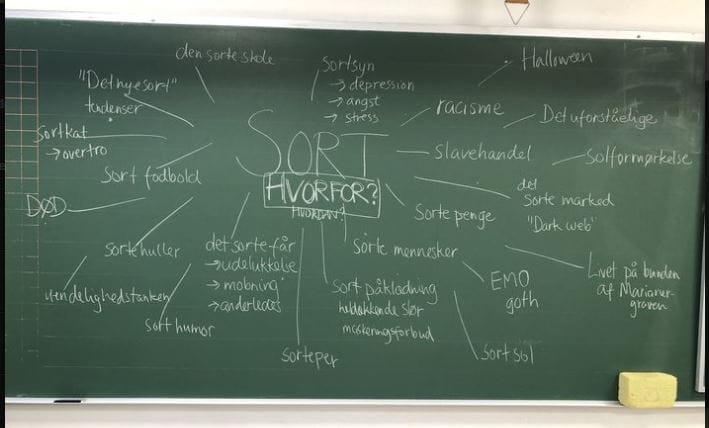 den sorte skole
sortsyn
→ depression
→ angst
→ stress
Halloween
"Det nye sort"
tendenser
racisme
Det uforståelige
sort kat
→ overtro
SORT
slavehandel
solformørkelse
sort fodbold
HVORFOR?
HVORDAN?
det
sorte marked
"Dark web"
DØD
sorte penge
sorte huller
det sorte får
→ udelukkelse
→ mobning
→ anderledes
sorte mennesker
Livet på bunden
af Marianer-
graven
uendelighedstanken
sort påklædning
heldækkende slør
maskeringsforbud
EMO
goth
sort humor
sorteper
sort sol